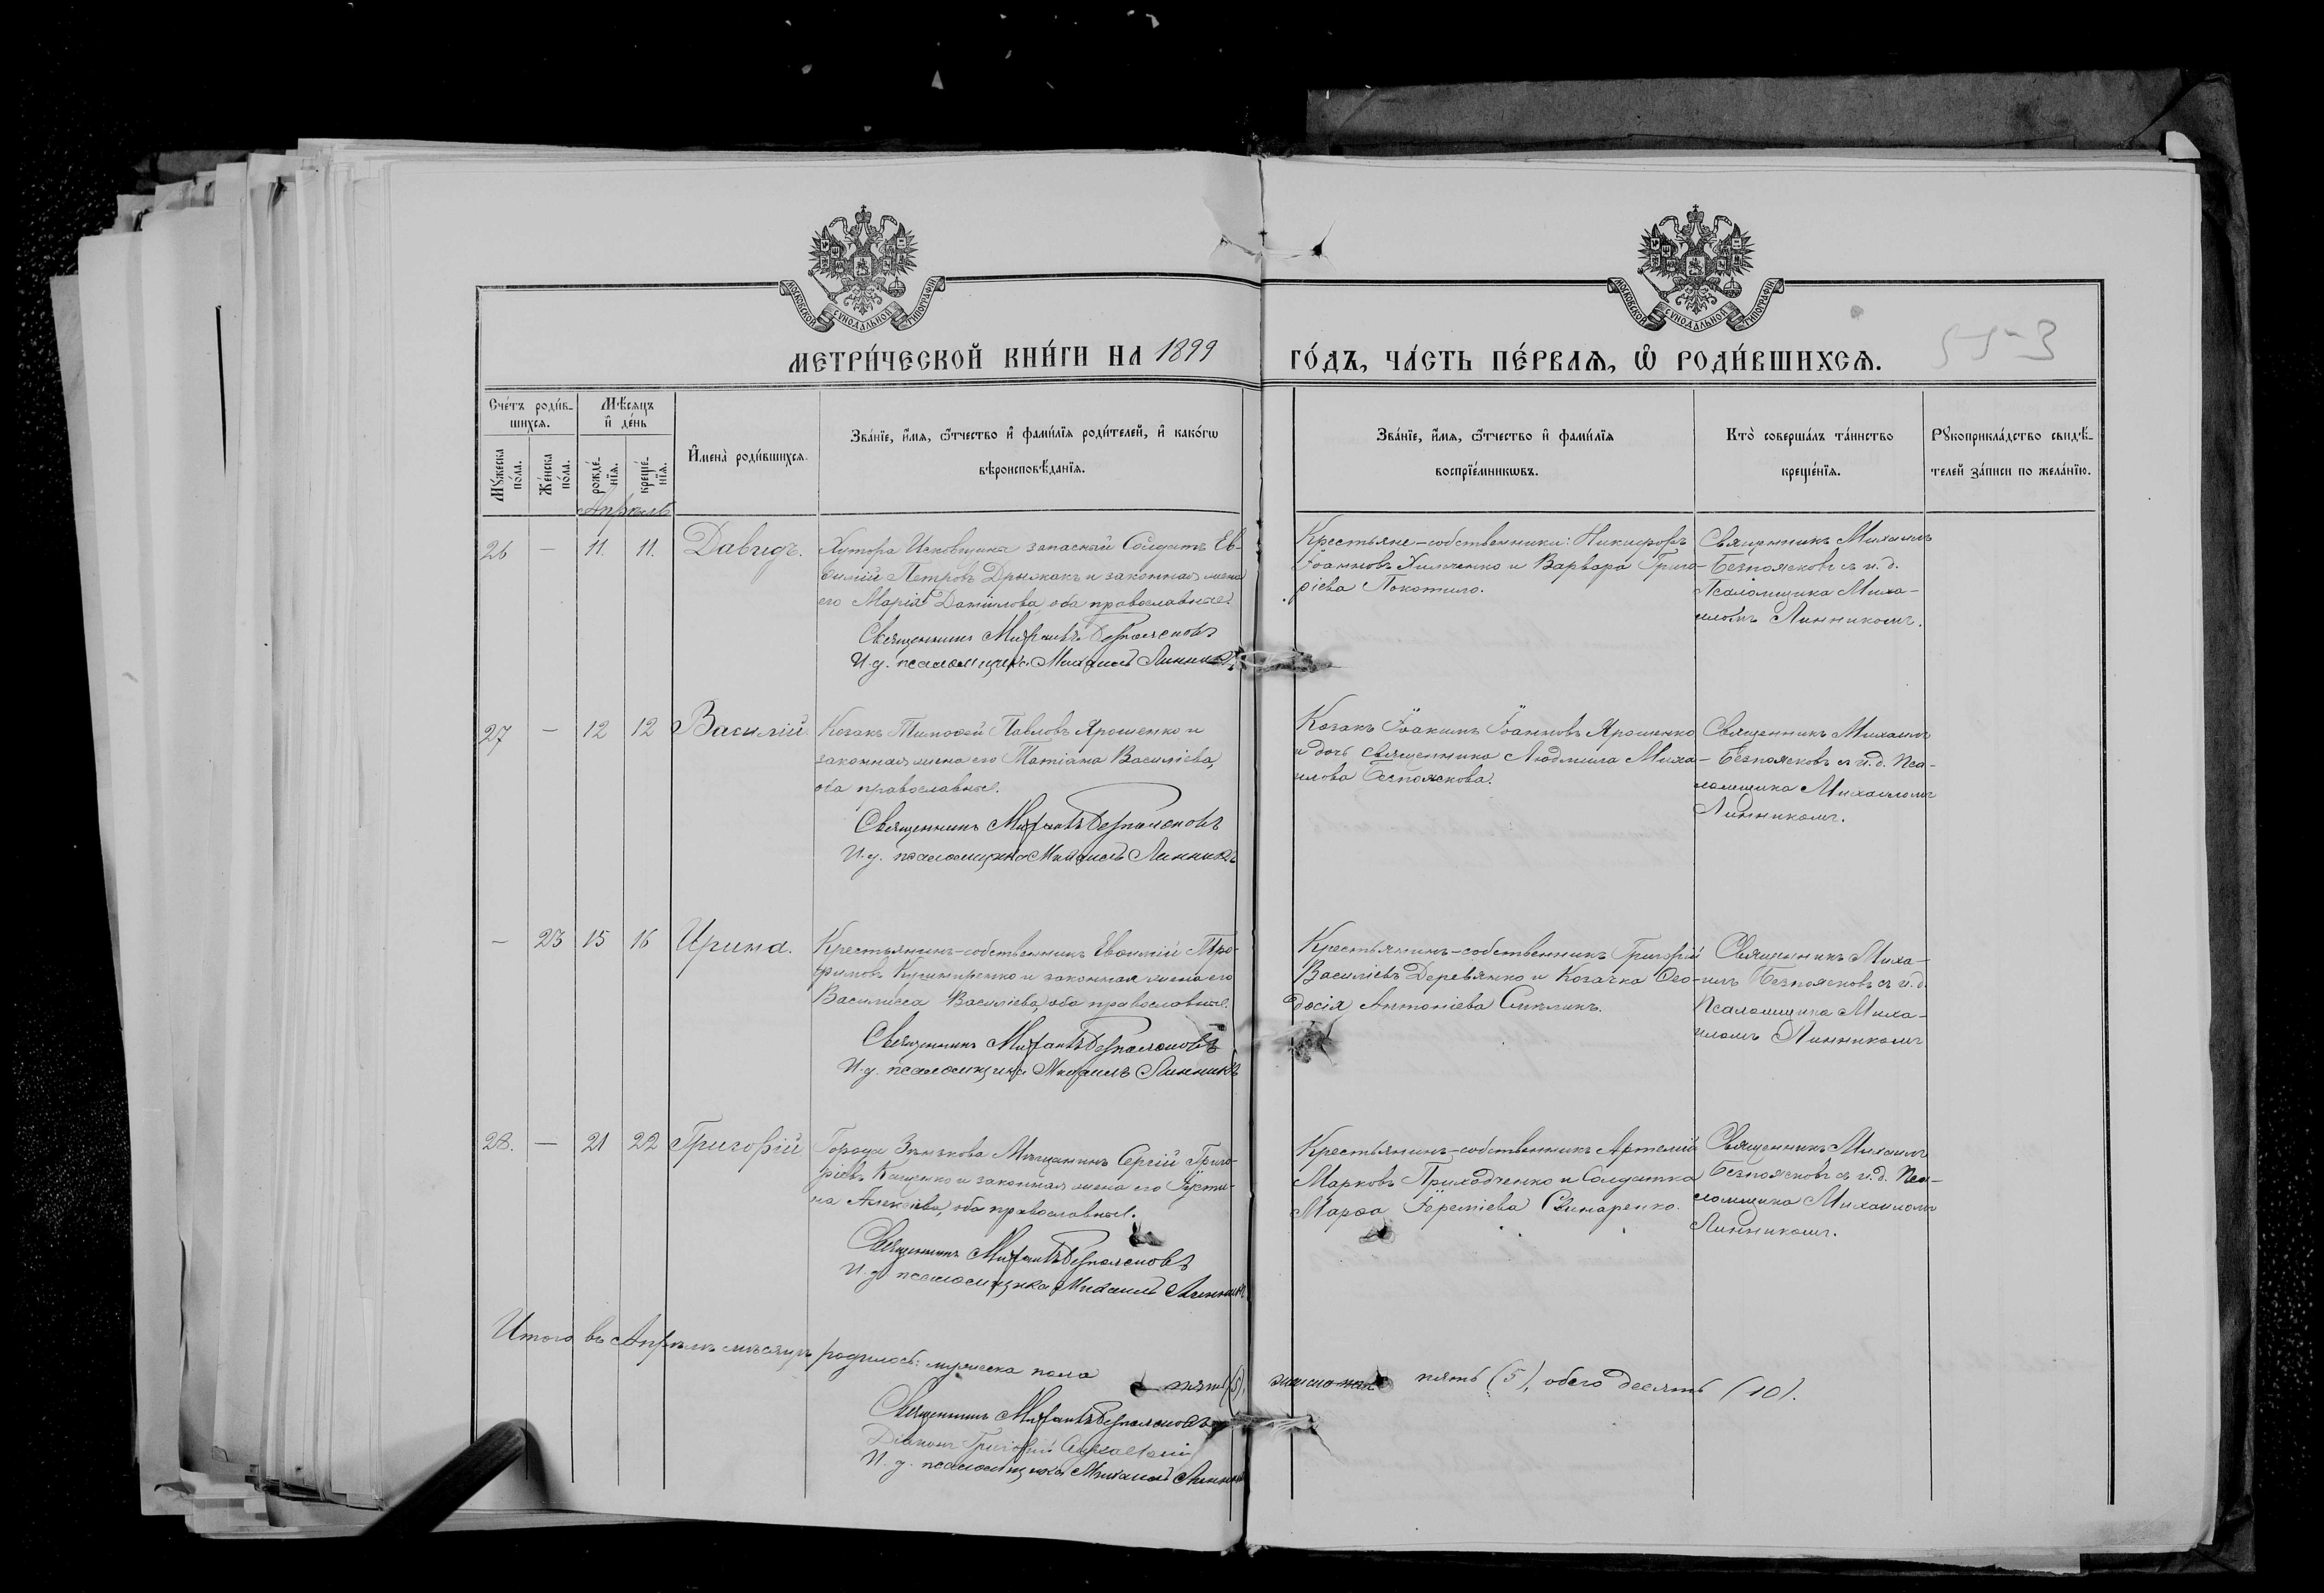 МОСКОВСКОЙ СѴНОДАЛЬНОЙ ТИПОГРАФІИ
МОСКОВСКОЙ СѴНОДАЛЬНОЙ ТИПОГРАФІИ
МЕТРИ́ЧЕСКОЙ КНИ́ГИ НА 1899
ГО́ДЪ, ЧА́СТЬ ПЕ́РВАѦ, Ѡ҆ РОДИ́ВШИХСѦ.
Сче́тъ роди́в-
шихсѧ.
Мѣ́сѧцъ
и҆ де́нь
Мꙋ́жеска
по́ла.
Же́нска
по́ла.
рожде́-
нїѧ.
креще́-
нїѧ.
И҆мена̀ роди́вшихсѧ.
Зва́нїе, и҆́мѧ, ѻ҆́тчество и҆ фами́лїѧ роди́телей, и҆ како́гѡ
вѣроисповѣ́данїѧ.
Зва́нїе, и҆́мѧ, ѻ҆́тчество и҆ фами́лїѧ
воспрїе́мникѡвъ.
Кто̀ соверша́лъ та́инство
креще́нїѧ.
Рꙋкоприкла́дство свидѣ́-
телей за́писи по жела́нїю.
Апрѣль
26 — 11. 11. Давидъ.
Хутора запасный Солдатъ Ев-
ѳимій Петровъ Дрыжакъ и законная жена
его Марія Даніилова, оба православные.
Священникъ Михаилъ Безпоясковъ
И. д. псаломщика Михаилъ Линникъ
Крестьяне-собственники: Никифоръ
Іоанновъ Хильченко и Варвара Григо-
рієва Покотило.
Священникъ Михаилъ
Безпоясковъ съ и. д.
Псаломщика Миха-
иломъ Линникомъ.
27 — 12 12 Василій.
Козакъ Тимоѳей Павловъ Ярошенко и
законная жена его Татіана Василіева,
оба православные.
Священникъ Михаилъ Безпоясковъ
И. д. псаломщика Михаилъ Линникъ
Козакъ Іоакимъ Іоанновъ Ярошенко
и дочь священника Людмила Миха-
илова Безпояскова.
Священникъ Михаилъ
Безпоясковъ съ и. д. Пса-
ломщика Михаиломъ
Линникомъ.
— 23 15 16 Ирина.
Крестьянинъ-собственникъ Евѳимій Тро-
фимовъ и законная жена его
Василисса Василіева, оба православные.
Священникъ Михаилъ Безпоясковъ
И. д. псаломщика Михаилъ Линникъ
Крестьянинъ-собственникъ Григорій
Василіевъ Деревянко и Козачка Ѳео-
досія Антоніева
Священникъ Миха-
илъ Безпоясковъ съ и. д.
Псаломщика Миха-
иломъ Линникомъ
28. — 21 22 Григорій
Города Зѣнькова Мѣщанинъ Сергій Григо-
ріевъ и законная жена его Іусти-
на Алексіева, оба православные.
Священникъ Михаилъ Безпоясковъ
И. д. псаломщика Михаилъ Линникъ
Крестьянинъ-собственникъ Артемій
Марковъ Приходченко и Солдатка
Марѳа Іереміева Свинаренко.
Священникъ Михаилъ
Безпоясковъ съ и. д. Пса-
ломщика Михаиломъ
Линникомъ.
Итого въ Апрѣлѣ мѣсяцѣ родилось: мужеска пола пять (5), женска пола пять (5), обего десять (10).
Священникъ Михаилъ Безпоясковъ
Діаконъ Григорій
И. д. псаломщика Михаилъ Линникъ